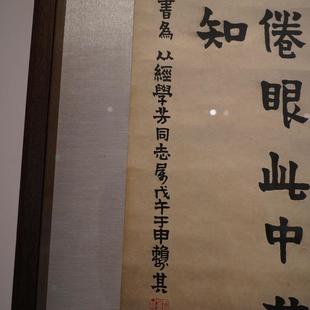 倦眼此中
知
書為从經學芳同志属戊午于申賴其